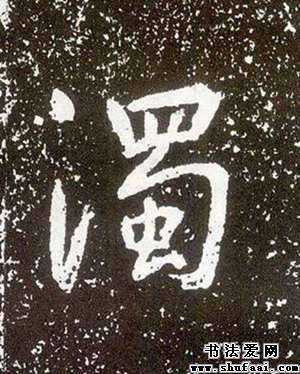 濁
书法爱网
www.shufaai.com